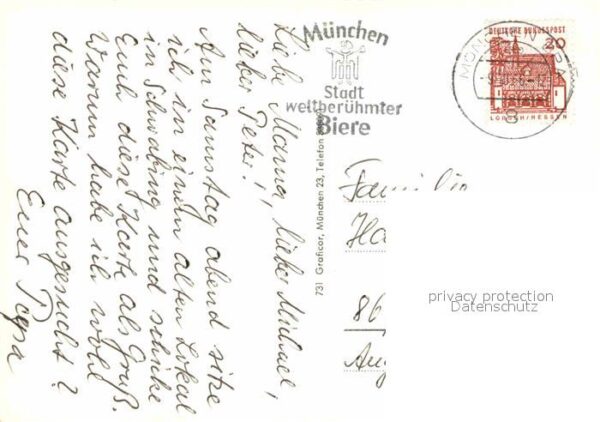 Liebe Mama, lieber Michael,
lieber Peter!
Am Samstag abend sitze
ich in einem alten Lokal
in Schwabing und schicke
Euch diese Karte als Gruß.
Warum habe ich wohl
diese Karte ausgesucht?
Euer Papa
731 Graficor, München 23, Telefon
München
Stadt
weltberühmter
Biere
DEUTSCHE BUNDESPOST
20
LORSCH/HESSEN
Familie
Ha
86
Aug
privacy protection
Datenschutz